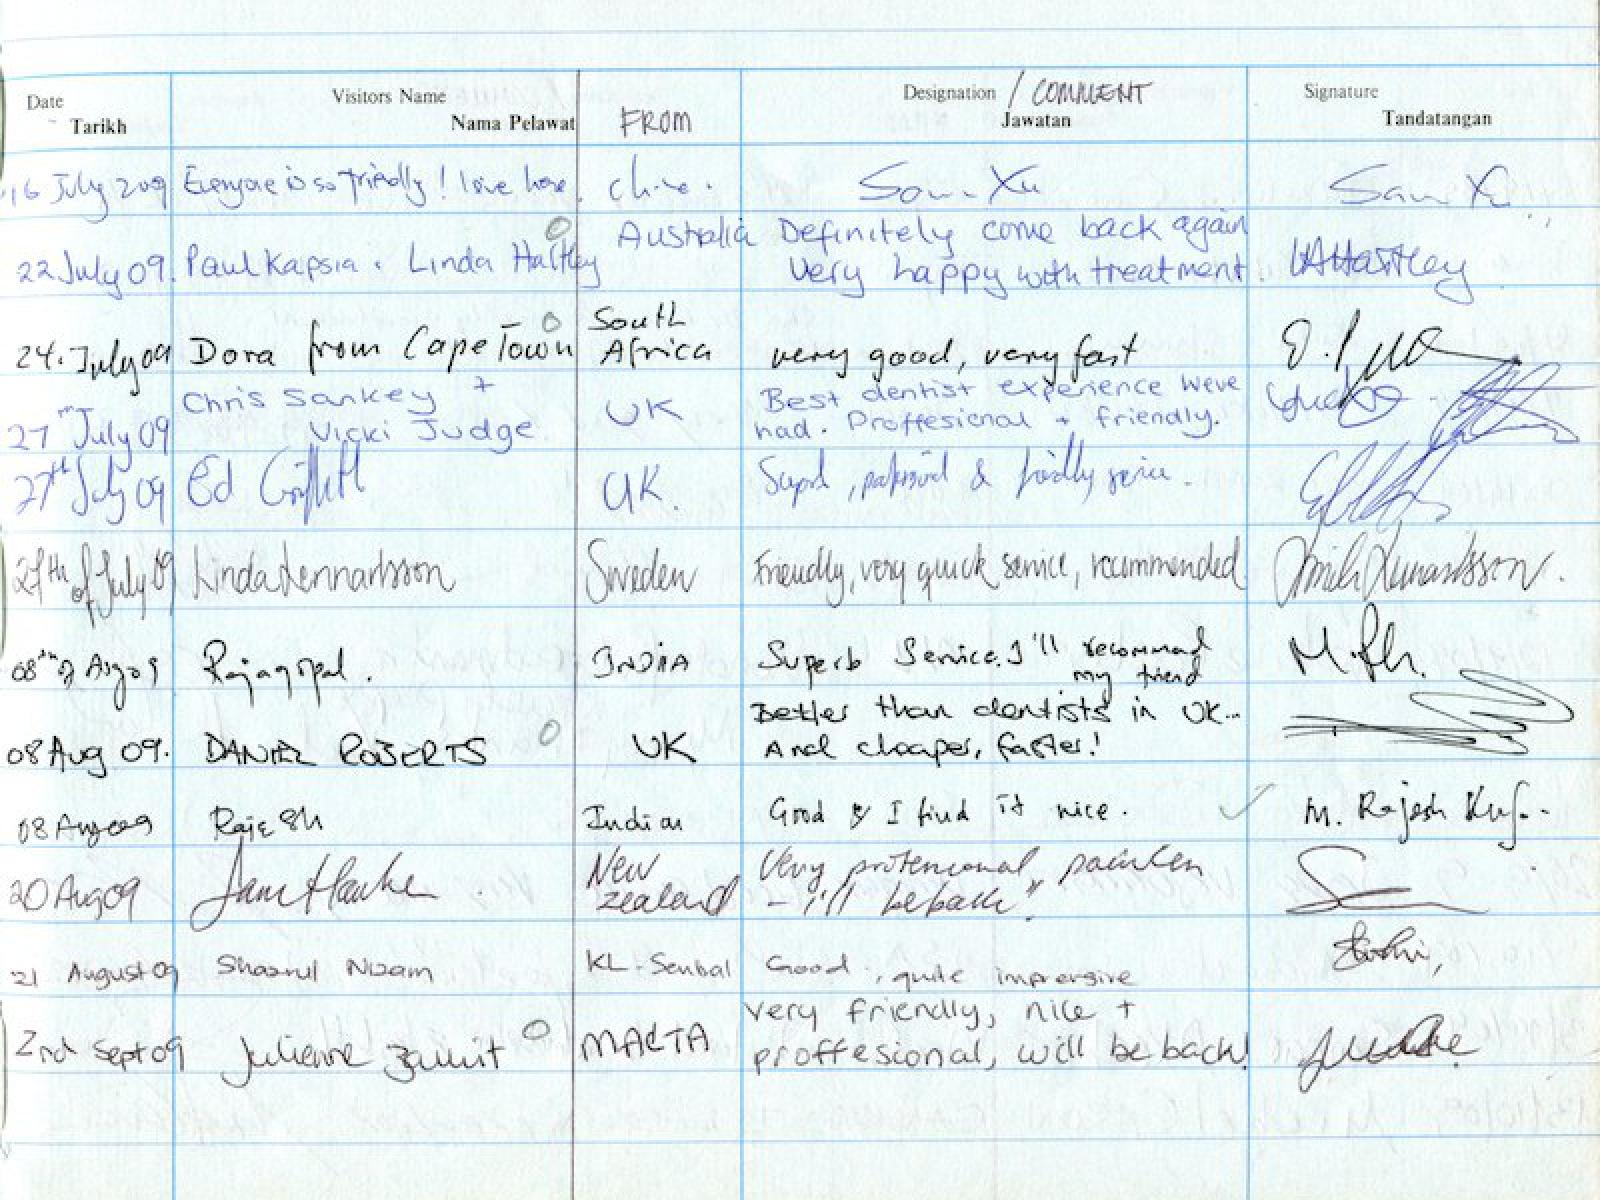 Date Visitors Name Designation / COMMENT Signature
Tarikh Nama Pelawat FROM Jawatan Tandatangan
16 July 209 Everyone is so friendly! love here. China. Sam Xu Sam Xu
Australia Definitely come back again
22 July 09. Paul Kapsia & Linda Hartley Very happy with treatment. LAHartley
South
24. July 09 Dora from Cape Town Africa very good, very fast
Chris Sankey + Best dentist experience weve
27th July 09 Vicki Judge UK had. Proffesional + friendly.
27th July 09 Ed Griffith UK. Superb, professional & friendly service.
27th of July 09 Linda Lennartsson Sweden Friendly, very quick service, recommended Linda Lennartsson.
08th of Aug 09 Rajagopal. INDIA Superb Service. I'll recommend
my friend
Better than dentists in UK...
08 Aug 09. DANIEL ROBERTS UK And cheaper, faster!
08 Aug 009 Rajesh Indian Good & I find it nice. M. Rajesh
New Very professional, painless
20 Aug 09 zealand - "I'll be back"
21 August 09 Shaarul Nizam KL-Sentral Good, quite impressive
Very friendly, nice +
2nd Sept 09 Julienne Zamit MALTA proffesional, will be back!